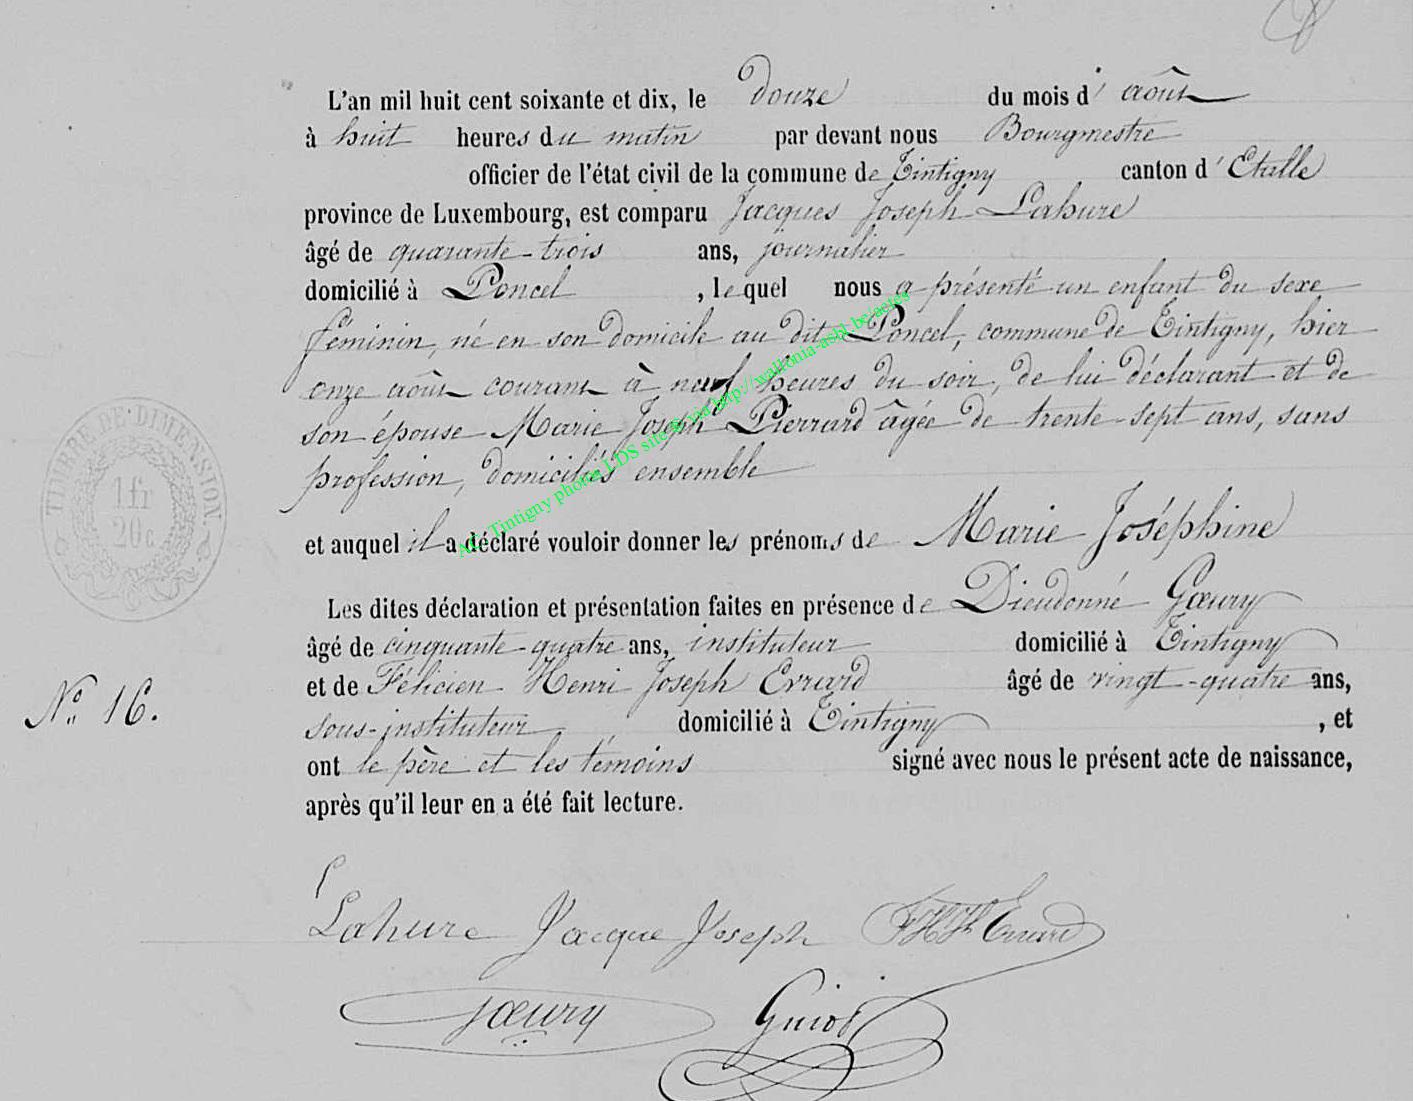 L'an mil huit cent soixante et dix, le douze du mois d' août
à huit heures du matin par devant nous Bourgmestre
officier de l'état civil de la commune de Tintigny canton d' Etalle
province de Luxembourg, est comparu Jacques Joseph Lahure
âgé de quarante-trois ans, journalier
domicilié à Poncel , lequel nous a présenté un enfant du sexe
féminin, né en son domicile au dit Poncel, commune de Tintigny, hier
onze août courant à neuf heures du soir, de lui déclarant et de
son épouse Marie Joseph Pierrard âgée de trente-sept ans, sans
profession, domiciliés ensemble
et auquel il a déclaré vouloir donner les prénoms de Marie Joséphine
Les dites déclaration et présentation faites en présence de Dieudonné Gœury
âgé de cinquante-quatre ans, instituteur domicilié à Tintigny
et de Félicien Henri Joseph Evrard âgé de vingt-quatre ans,
N° 16.
sous-instituteur domicilié à Tintigny , et
ont le père et les témoins signé avec nous le présent acte de naissance,
après qu'il leur en a été fait lecture.
Lahure Jacque Joseph FHJh Evrard
Gœury Guiot
TIMBRE DE DIMENSION.
1 fr
20 c
AC Tintigny photo LDS site & via http://wallonia-asbl-be/actes